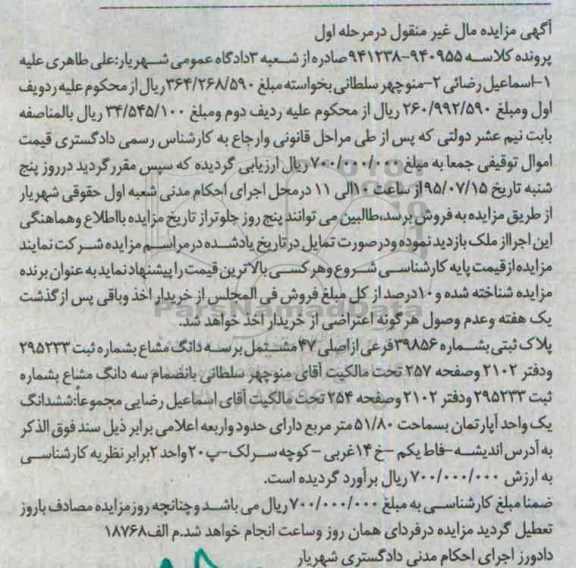 آگهی مزایده مال غیر منقول درمرحله اول
پرونده کلاسه ۹۴۰۹۵۵-۹۴۱۲۳۸ صادره از شعبه ۳دادگاه عمومی شهریار:علی طاهری علیه
۱-اسماعیل رضائی ۲-منوچهر سلطانی بخواسته مبلغ ۳۶۴/۲۶۸/۵۹۰ ریال از محکوم علیه ردویف
اول ومبلغ ۲۶۰/۹۹۲/۵۹۰ ریال از محکوم علیه ردیف دوم ومبلغ ۳۴/۵۴۵/۱۰۰ ریال بالمناصفه
بابت نیم عشر دولتی که پس از طی مراحل قانونی وارجاع به کارشناس رسمی دادگستری قیمت
اموال توقیفی جمعا به مبلغ ۷۰۰/۰۰۰/۰۰۰ ریال ارزیابی گردیده که سپس مقررگردید درروز پنج
شنبه تاریخ ۹۵/۰۷/۱۵از ساعت ۱۰الی ۱۱ درمحل اجرای احکام مدنی شعبه اول حقوقی شهریار
از طریق مزایده به فروش برسد،طالبین می توانند پنج روز جلوتراز تاریخ مزایده بااطلاع وهماهنگی
این اجرااز ملک بازدید نموده ودرصورت تمایل درتاریخ یادشده درمراسم مزایده شرکت نمایند
مزایده ازقیمت پایه کارشناسی شروع وهرکسی بالاترین قیمت را پیشنهاد نماید به عنوان برنده
مزایده شناخته شده و۱۰درصد از کل مبلغ فروش فی المجلس از خریدار اخذ وباقی پس از گذشت
یک هفته وعدم وصول هرگونه اعتراضی از خریدار اخذ خواهد شد.
پلاک ثبتی بشماره ۳۹۸۵۶فرعی ازاصلی ۴۷ مشتمل برسه دانگ مشاع بشماره ثبت ۲۹۵۲۳۳
ودفتر ۲۱۰۲ وصفحه ۲۵۷ تحت مالکیت آقای منوچهر سلطانی بانضمام سه دانگ مشاع بشماره
ثبت ۲۹۵۲۳۳ ودفتر ۲۱۰۲ وصفحه ۲۵۴ تحت مالکیت آقای اسماعیل رضایی مجموعاً:ششدانگ
یک واحد آپارتمان بمساحت ۵۱/۸۰ متر مربع دارای حدود واربعه اعلامی برابر ذیل سند فوق الذکر
به آدرس اندیشه-فاط یکم -خ ۱۴غربی -کوچه سرلک-پ۲۰ واحد ۲برابر نظریه کارشناسی
به ارزش ۷۰۰/۰۰۰/۰۰۰ ریال برآورد گردیده است.
ضمنا مبلغ کارشناسی به مبلغ ۷۰۰/۰۰۰/۰۰۰ریال می باشد وچنانچه روزمزایده مصادف باروز
تعطیل گردید مزایده درفردای همان روز وساعت انجام خواهد شد.م الف۱۸۷۶۸
دادورز اجرای احکام مدنی دادگستری شهریار
ParsNamadData